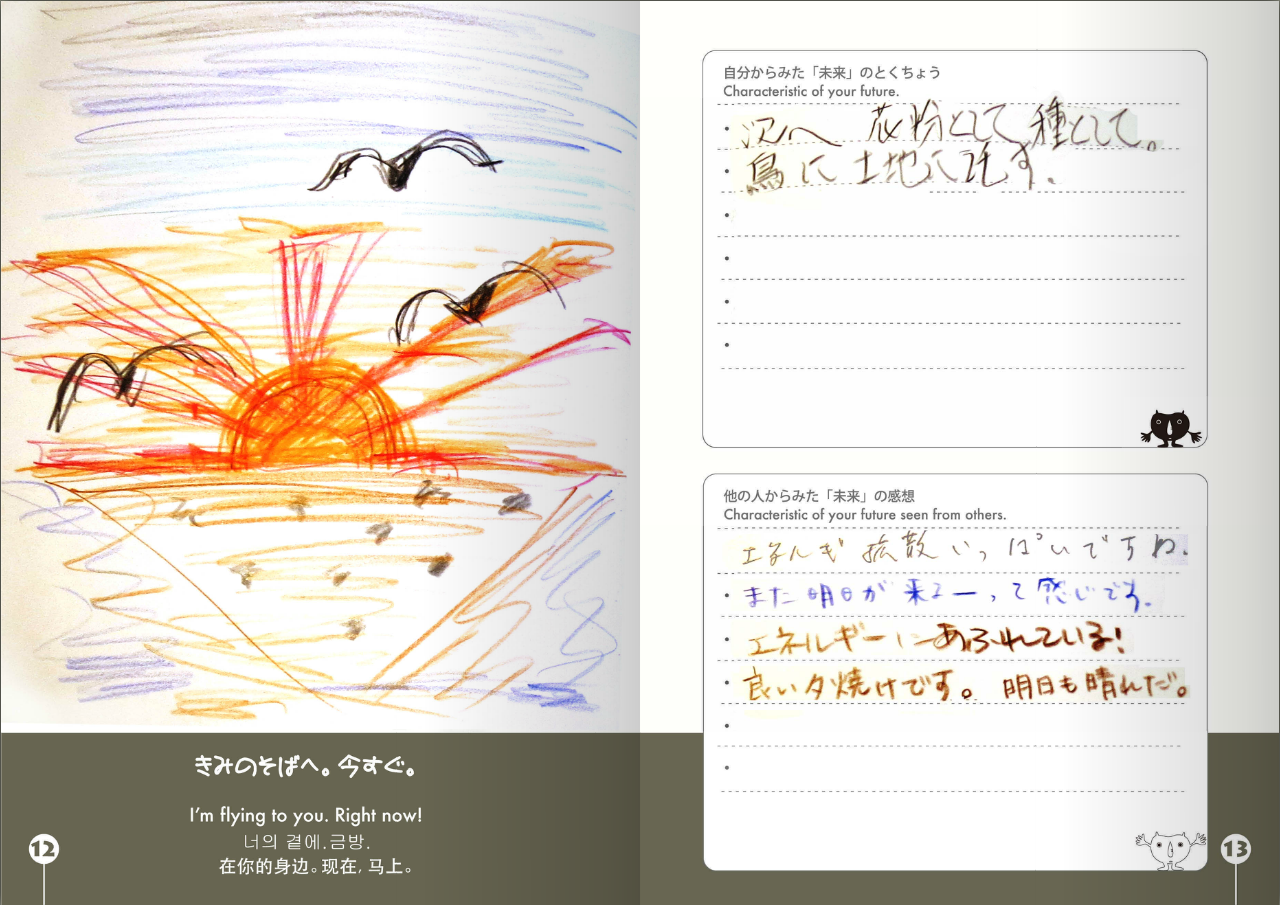 きみのそばへ。今すぐ。
I'm flying to you. Right now!
너의 곁에.금방.
在你的身边。现在, 马上。
12
自分からみた「未来」のとくちょう
Characteristic of your future.
次へ 花粉として 種として。
鳥に 土地に託す.
他の人からみた「未来」の感想
Characteristic of your future seen from others.
エネルギ 拡散いっぱいですね.
また明日が来るーって感じです.
エネルギーにあふれている!
良い夕焼けです。 明日も晴れだ。
13